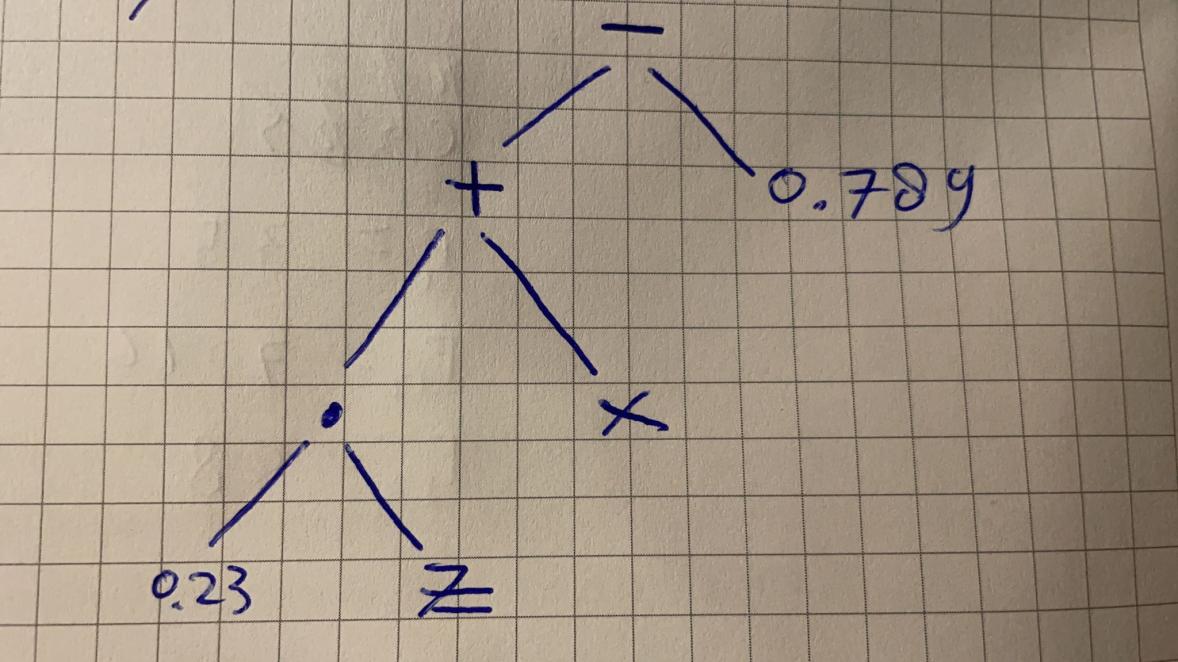 −
+ 0.789
• x
0.23 z